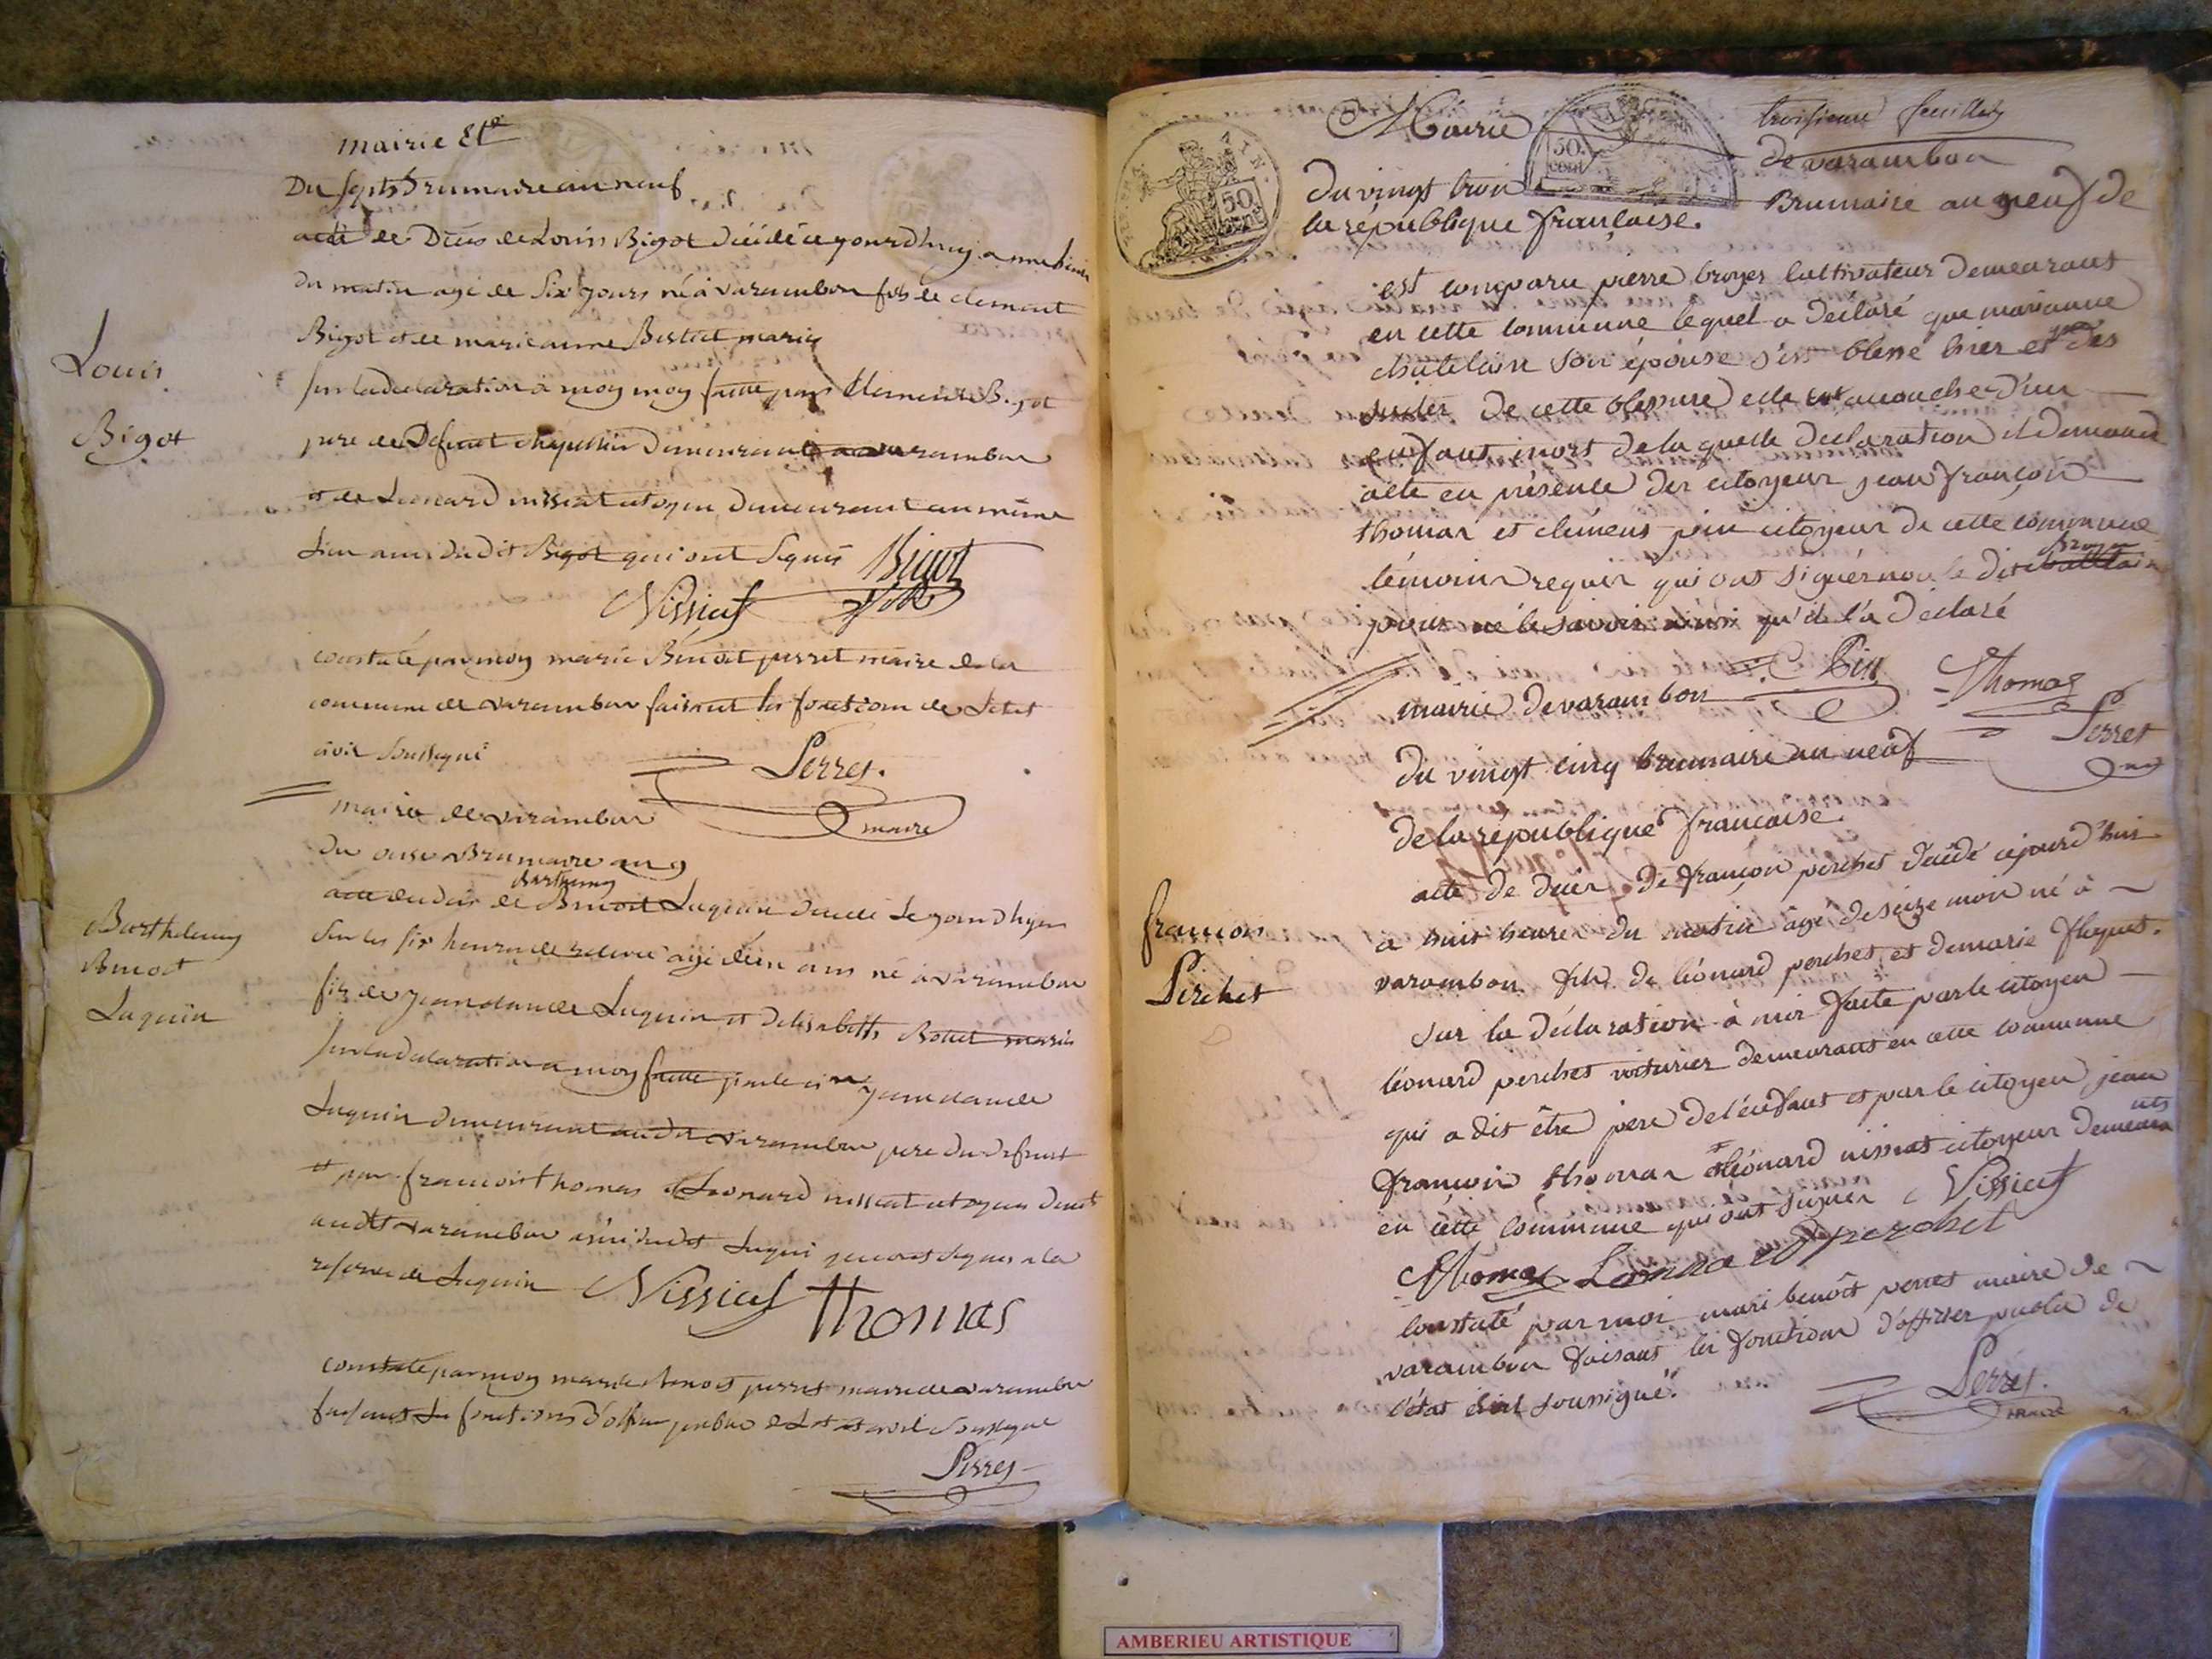 mairie &c
Du septs Brumaire an neuf
acte de Dices de Louis Bigot décédé ce jourdhuy a une heure
du matin agé de six jours né à varambon fils de clement
Bigot et de marie anne mariés
Louis
Bigot
sur la declaration a moy moy faitte par Clement Bigot
pere de Defunt chapellier Demeurant a varambon
et de Leonard nissiat citoyen Demeurant au même
Lieu ami du dit Bigot qui ont signés Bigot
Nissiat
constaté par moy marie Benoit perret maire de la
commune de varambon faisant les fonctions de Letat
civil soussigné
Perret.
maire
mairie de varambon
Du onse Brumaire an 9
Barthemy
acte de de Benoit Luquin decedé Le jourdhyer
Barthelemy
Benoit
Luquin
sur les six heures de relevé agé dun ans né à varambon
fis de jean claude Luquin et delisabeth mariés
sur la declaration a moy faitte par le cien jean claude
Luquin demeurant audit varambon pere du defunt
et par francois thomas et Leonard nissiat citoyen demt
audit varambon amis dudit Luquin signés a la
reserve de Luquin Nissiat Thomas
constaté par moy marie benoit perret maire de varambon
faisant Les fonctions d'officier public de Letat civil soussigné
Perret
AIN.
50 cent
50. cent
Mairie
troisieme feuillet
de varambon
du vingt trois Brumaire an neuf de
la république française.
est comparu pierre broyer cultivateur demeurant
en cette commune lequel a déclaré que marianne
chatelain son épouse s'est blessé hier et que des
suites de cette blessure elle est accouché d'un
enfant mort de la quelle declaration il demande
acte en présence des citoyens jean françois
thomas et clémens pin citoyens de cette commune
broyer
témoins requis qui ont signés non le dit chatelain
pour ne le savoir ainsi qu'il l'a déclaré
C Pin Thomas
mairie de varambon
Perret
du vingt cinq brumaire an neuf
de la république francaise.
acte de décés de françois perchet décédé cejourd'hui
à huit heures du matin âgé de seize mois né à
francois
Perchet
varambon fils de léonard perchet et de marie
sur la déclaration à moi faite par le citoyen
léonard perchet voiturier demeurant en cette commune
qui a dit être pere de l'enfant et par le citoyen jean
françois thomas et léonard nissiat citoyens demeurants
en cette commune qui ont signés Nissiat
Thomas Leonard perchet
constaté par moi mari benoît perret maire de
varambon faisant les fonctions d'officier public de
l'état civil soussigné.
Perret.
maire
AMBERIEU ARTISTIQUE